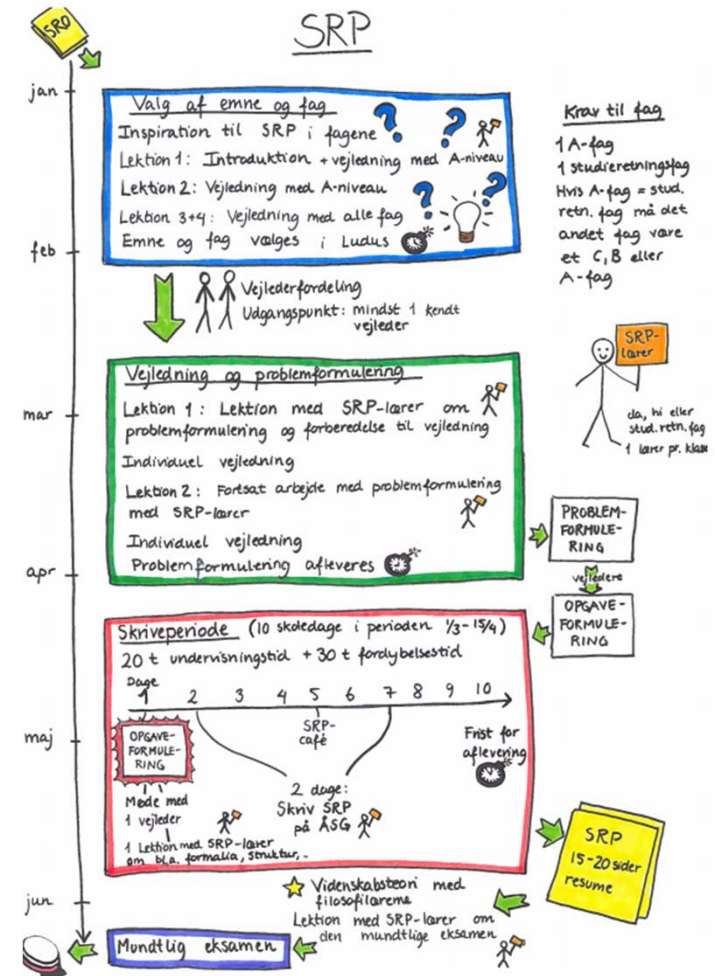 SRO
SRP
jan
Valg af emne og fag
Inspiration til SRP i fagene ? ?
Lektion 1: Introduktion + vejledning med A-niveau
Lektion 2: Vejledning med A-niveau
? ?
Lektion 3+4: Vejledning med alle fag
Emne og fag vælges i Ludus
Krav til fag
1 A-fag
1 studieretningsfag
Hvis A-fag = stud.
retn. fag må det
andet fag være
et C, B eller
A-fag
feb
Vejlederfordeling
Udgangspunkt: mindst 1 kendt
vejleder
SRP-
lærer
da, hi eller
stud. retn. fag
1 lærer pr. klasse
Vejledning og problemformulering
mar
Lektion 1: Lektion med SRP-lærer om
problemformulering og forberedelse til vejledning
Individuel vejledning
Lektion 2: Fortsat arbejde med problemformulering
med SRP-lærer
Individuel vejledning
Problemformulering afleveres
PROBLEM-
FORMULE-
RING
vejledere
OPGAVE-
FORMULE-
RING
apr
Skriveperiode (10 skoledage i perioden 1/3 - 15/4)
20 t undervisningstid + 30 t fordybelsestid
Dage
1 2 3 4 5 6 7 8 9 10
maj
OPGAVE-
FORMULE-
RING
SRP-
café
Frist for
aflevering
Møde med
1 vejleder
1 Lektion med SRP-lærer
om bl.a. formalia, struktur,..
2 dage:
Skriv SRP
på ÅSG
SRP
15-20 sider
resume
jun
Videnskabsteori med
filosofilærerne
Lektion med SRP-lærer om
den mundtlige eksamen
Mundtlig eksamen